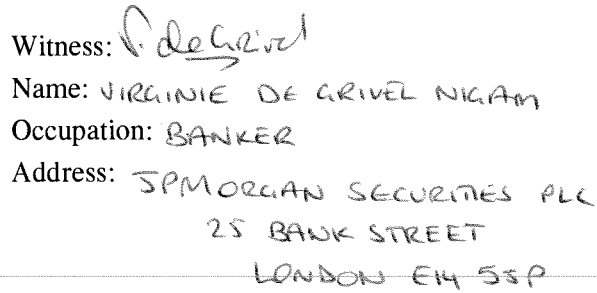 Witness: V. de Grivel
Name: VIRGINIE DE GRIVEL NIGAM
Occupation: BANKER
Address: JPMORGAN SECURITIES PLC
25 BANK STREET
LONDON E14 5JP